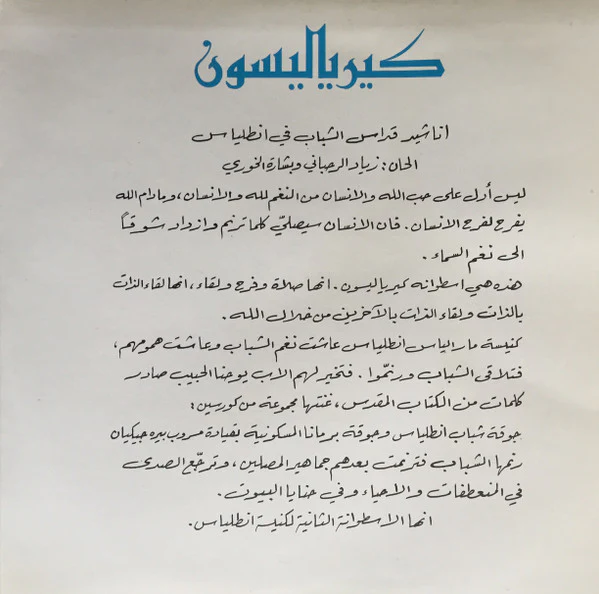 كيرياليسون
اناشيد قداس الشباب في انطلياس
الحان: زياد الرحباني وبشارة الخوري
ليس أدل على حب الله والانسان من النغم لله والانسان، ومادام الله
يفرح لفرح الانسان. فان الانسان سيصلّي كلما ترنم وازداد شوقاً
الى نغم السماء.
هذه هي اسطوانة كيرياليسون. انها صلاة وفرح ولقاء، انها لقاء الذات
بالذات ولقاء الذات بالآخرين من خلال الله.
كنيسة مار الياس انطلياس عاشت نغم الشباب وعاشت همومهم،
فتلاقى الشباب ورنّموا. فتخير لهم الاب يوحنا الحبيب صادر
كلمات من الكتاب المقدس، غنتها مجموعة من كورسين:
جوقة شباب انطلياس وجوقة برمانا المسكونية بقيادة مسروب بيره جيكيان
رنمها الشباب فترنمت بعدهم جماهير المصلين، وترجّع الصدى
في المنعطفات والاحياء وفي حنايا البيوت.
انها الاسطوانة الثانية لكنيسة انطلياس.